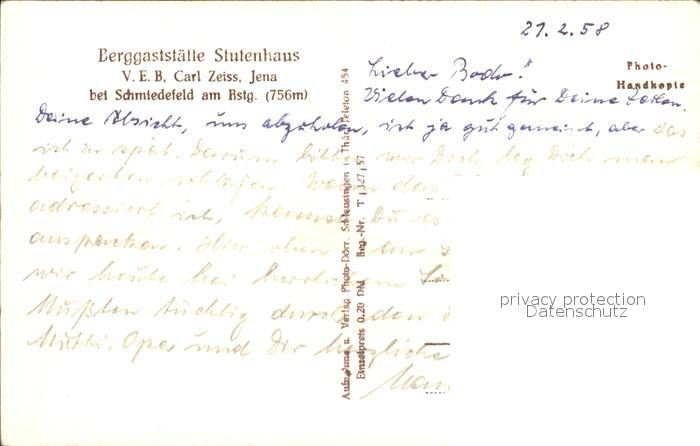 21.2.58
Berggaststätte Stutenhaus
V.E.B. Carl Zeiss, Jena
bei Schmiedefeld am Rstg. (756m)
Photo-
Handkopie
Lieber Bodo!
Vielen Dank für Deine Zeilen.
Deine Absicht, uns abzuholen, ist ja gut gemeint, aber das
ist zu spät. Darum bitten wir Dich, leg Dich man
beizeiten schlafen. Wenn das
adressiert ist, kannst Du es
auspacken. Hier oben
wir heute bei herrlichem
Mußten tüchtig durch den
Mutti, Opa und Dir herzliche
Aufnahme u. Verlag Photo-Dörr, Schleusingen i. Thür. Telefon 454
Einzelpreis 0.20 DM Reg.-Nr. T 1327/57
privacy protection
Datenschutz